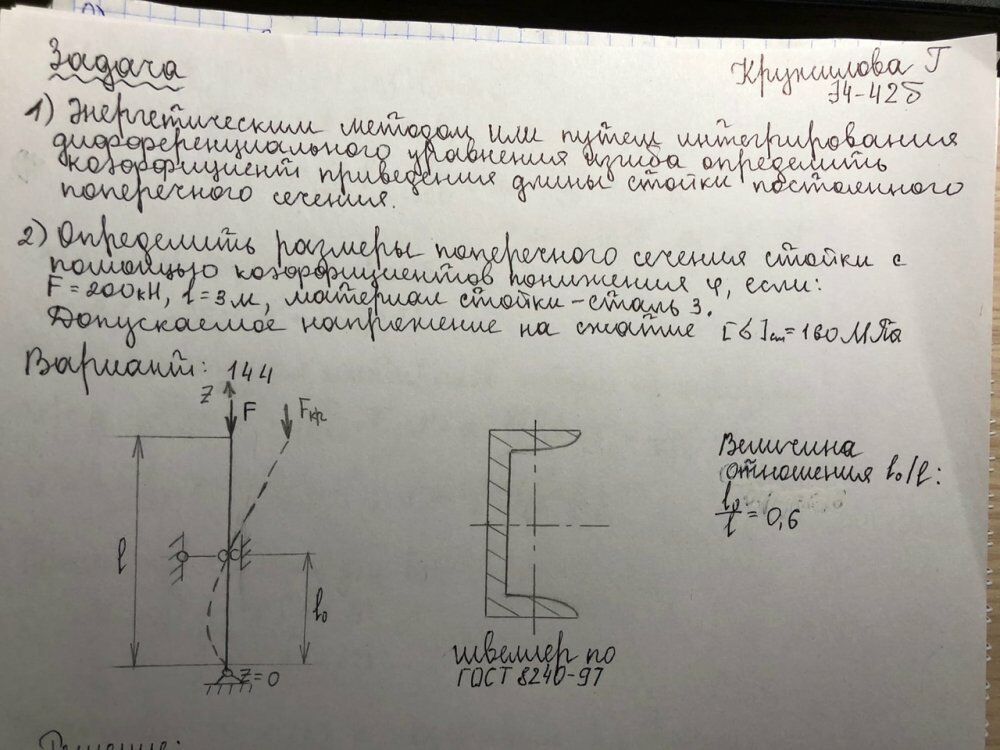 Задача
Крунилова Г
Э4-42Б
1) Энергетическим методом или путем интегрирования
дифференциального уравнения изгиба определить
коэффициент приведения длины стойки постоянного
поперечного сечения.
2) Определить размеры поперечного сечения стойки с
помощью коэффициентов понижения φ, если:
F = 200кН, l = 3м, материал стойки - сталь 3.
Допускаемое напряжение на сжатие [σ]сж = 160 МПа
Вариант: 144
z
F
Fкр
l
l₀
z=0
швеллер по
ГОСТ 8240-97
Величина
отношения l₀/l:
l₀/l = 0,6
Решение: